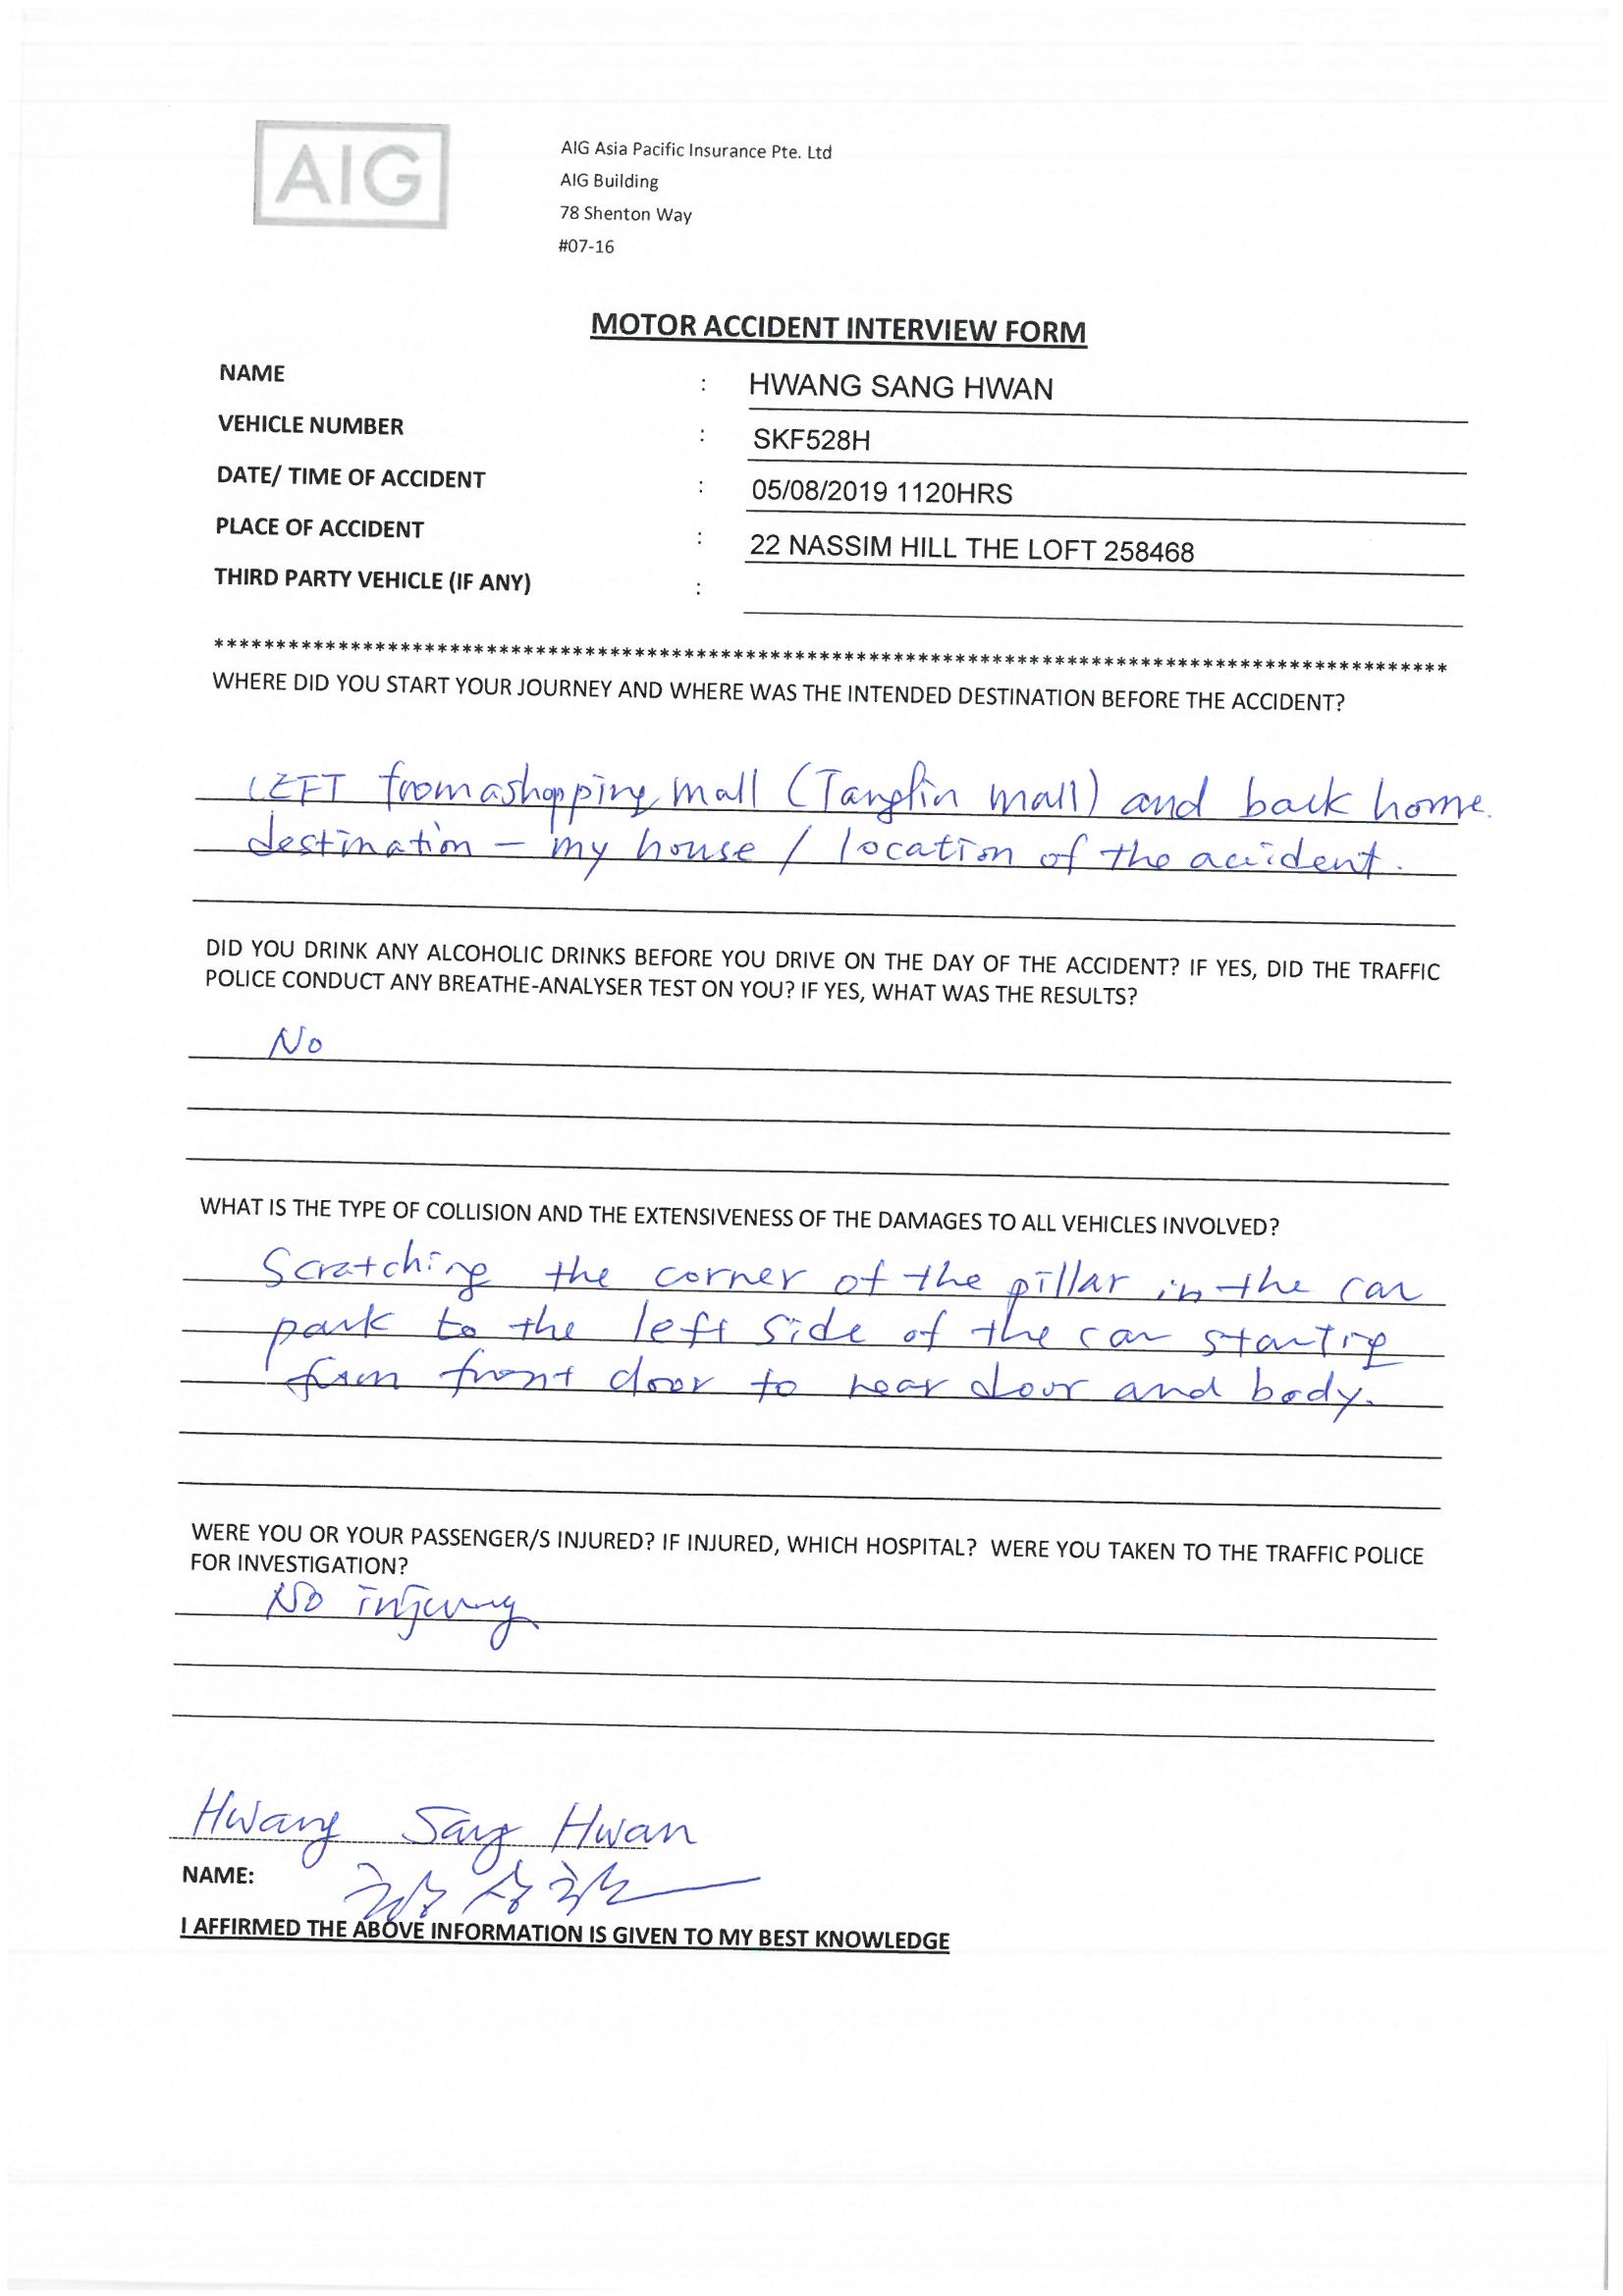 AIG
AIG Asia Pacific Insurance Pte. Ltd
AIG Building
78 Shenton Way
#07-16
MOTOR ACCIDENT INTERVIEW FORM
NAME : HWANG SANG HWAN
VEHICLE NUMBER : SKF528H
DATE/ TIME OF ACCIDENT : 05/08/2019 1120HRS
PLACE OF ACCIDENT : 22 NASSIM HILL THE LOFT 258468
THIRD PARTY VEHICLE (IF ANY) :
****************************************************************************************************
WHERE DID YOU START YOUR JOURNEY AND WHERE WAS THE INTENDED DESTINATION BEFORE THE ACCIDENT?
LEFT from a shopping mall (Tanglin mall) and back home.
destination – my house / location of the accident.
DID YOU DRINK ANY ALCOHOLIC DRINKS BEFORE YOU DRIVE ON THE DAY OF THE ACCIDENT? IF YES, DID THE TRAFFIC
POLICE CONDUCT ANY BREATHE-ANALYSER TEST ON YOU? IF YES, WHAT WAS THE RESULTS?
No
WHAT IS THE TYPE OF COLLISION AND THE EXTENSIVENESS OF THE DAMAGES TO ALL VEHICLES INVOLVED?
Scratching the corner of the pillar in the car
park to the left side of the car starting
from front door to rear door and body.
WERE YOU OR YOUR PASSENGER/S INJURED? IF INJURED, WHICH HOSPITAL? WERE YOU TAKEN TO THE TRAFFIC POLICE
FOR INVESTIGATION?
No injury
Hwang Sang Hwan
NAME: 황상환
I AFFIRMED THE ABOVE INFORMATION IS GIVEN TO MY BEST KNOWLEDGE